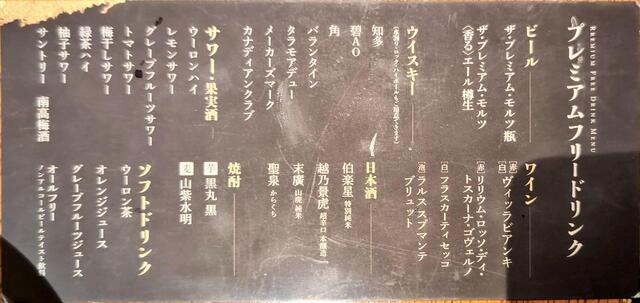 プレミアムフリードリンク
PREMIUM FREE DRINK MENU
ビール
ザ・プレミアム・モルツ 瓶
ザ・プレミアム・モルツ
〈香る〉エール 樽生
ウイスキー
(水割り・ロック・ハイボールもご用意できます)
知多
碧AO
角
バランタイン
タラモアデュー
メーカーズマーク
カナディアンクラブ
サワー・果実酒
ウーロンハイ
レモンサワー
グレープフルーツサワー
トマトサワー
梅干しサワー
緑茶ハイ
柚子サワー
サントリー 南高梅酒
ワイン
[赤][白] ヴィッラビアンキ
[赤] リリウム・ロッソ・ディ・
トスカーナ・ゴヴェルノ
[白] フラスカーティセッコ
[泡] ラルス スプマンテ
ブリュット
日本酒
伯楽星 特別純米
越乃景虎 超辛口 本醸造
末廣 山廃 純米
聖泉 からくち
焼酎
芋 黒丸 黒
麦 山紫水明
ソフトドリンク
ウーロン茶
オレンジジュース
グレープフルーツジュース
オールフリー
ノンアルコールビールテイスト飲料